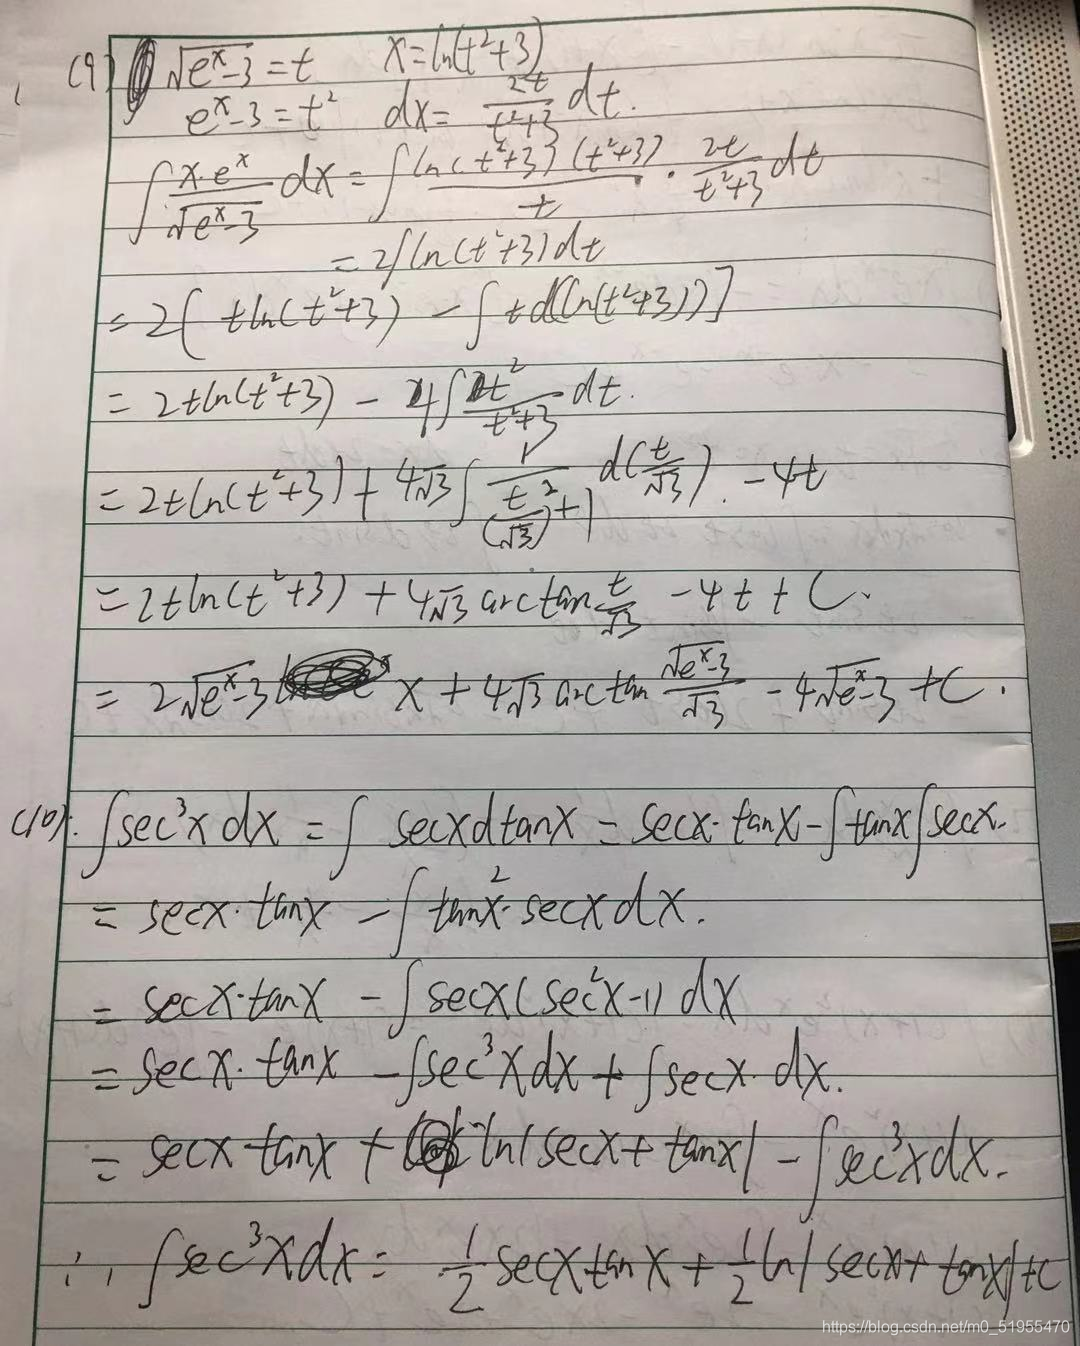 (9) √(e^x-3) = t    x = ln(t²+3)
e^x-3 = t²    dx = 2t/(t²+3) dt.
∫ x·e^x/√(e^x-3) dx = ∫ ln(t²+3)(t²+3)/t · 2t/(t²+3) dt
= 2∫ln(t²+3)dt
= 2[ tln(t²+3) - ∫td(ln(t²+3))]
= 2tln(t²+3) - 4∫ t²/(t²+3) dt.
= 2tln(t²+3) + 4√3 ∫ 1/((t/√3)²+1) d(t/√3) - 4t
= 2tln(t²+3) + 4√3 arctan t/√3 - 4t + C.
= 2√(e^x-3) x + 4√3 arctan √(e^x-3)/√3 - 4√(e^x-3) + C.
(10). ∫sec³x dx = ∫ secxdtanx = secx·tanx - ∫tanx∫secx.
= secx·tanx - ∫tan²x·secxdx.
= secx·tanx - ∫secx(sec²x-1)dx
= secx·tanx - ∫sec³xdx + ∫secx·dx.
= secx tanx + ln|secx+tanx| - ∫sec³xdx.
∴ ∫sec³xdx = 1/2 secxtanx + 1/2 ln|secx+tanx|+C
https://blog.csdn.net/m0_51955470